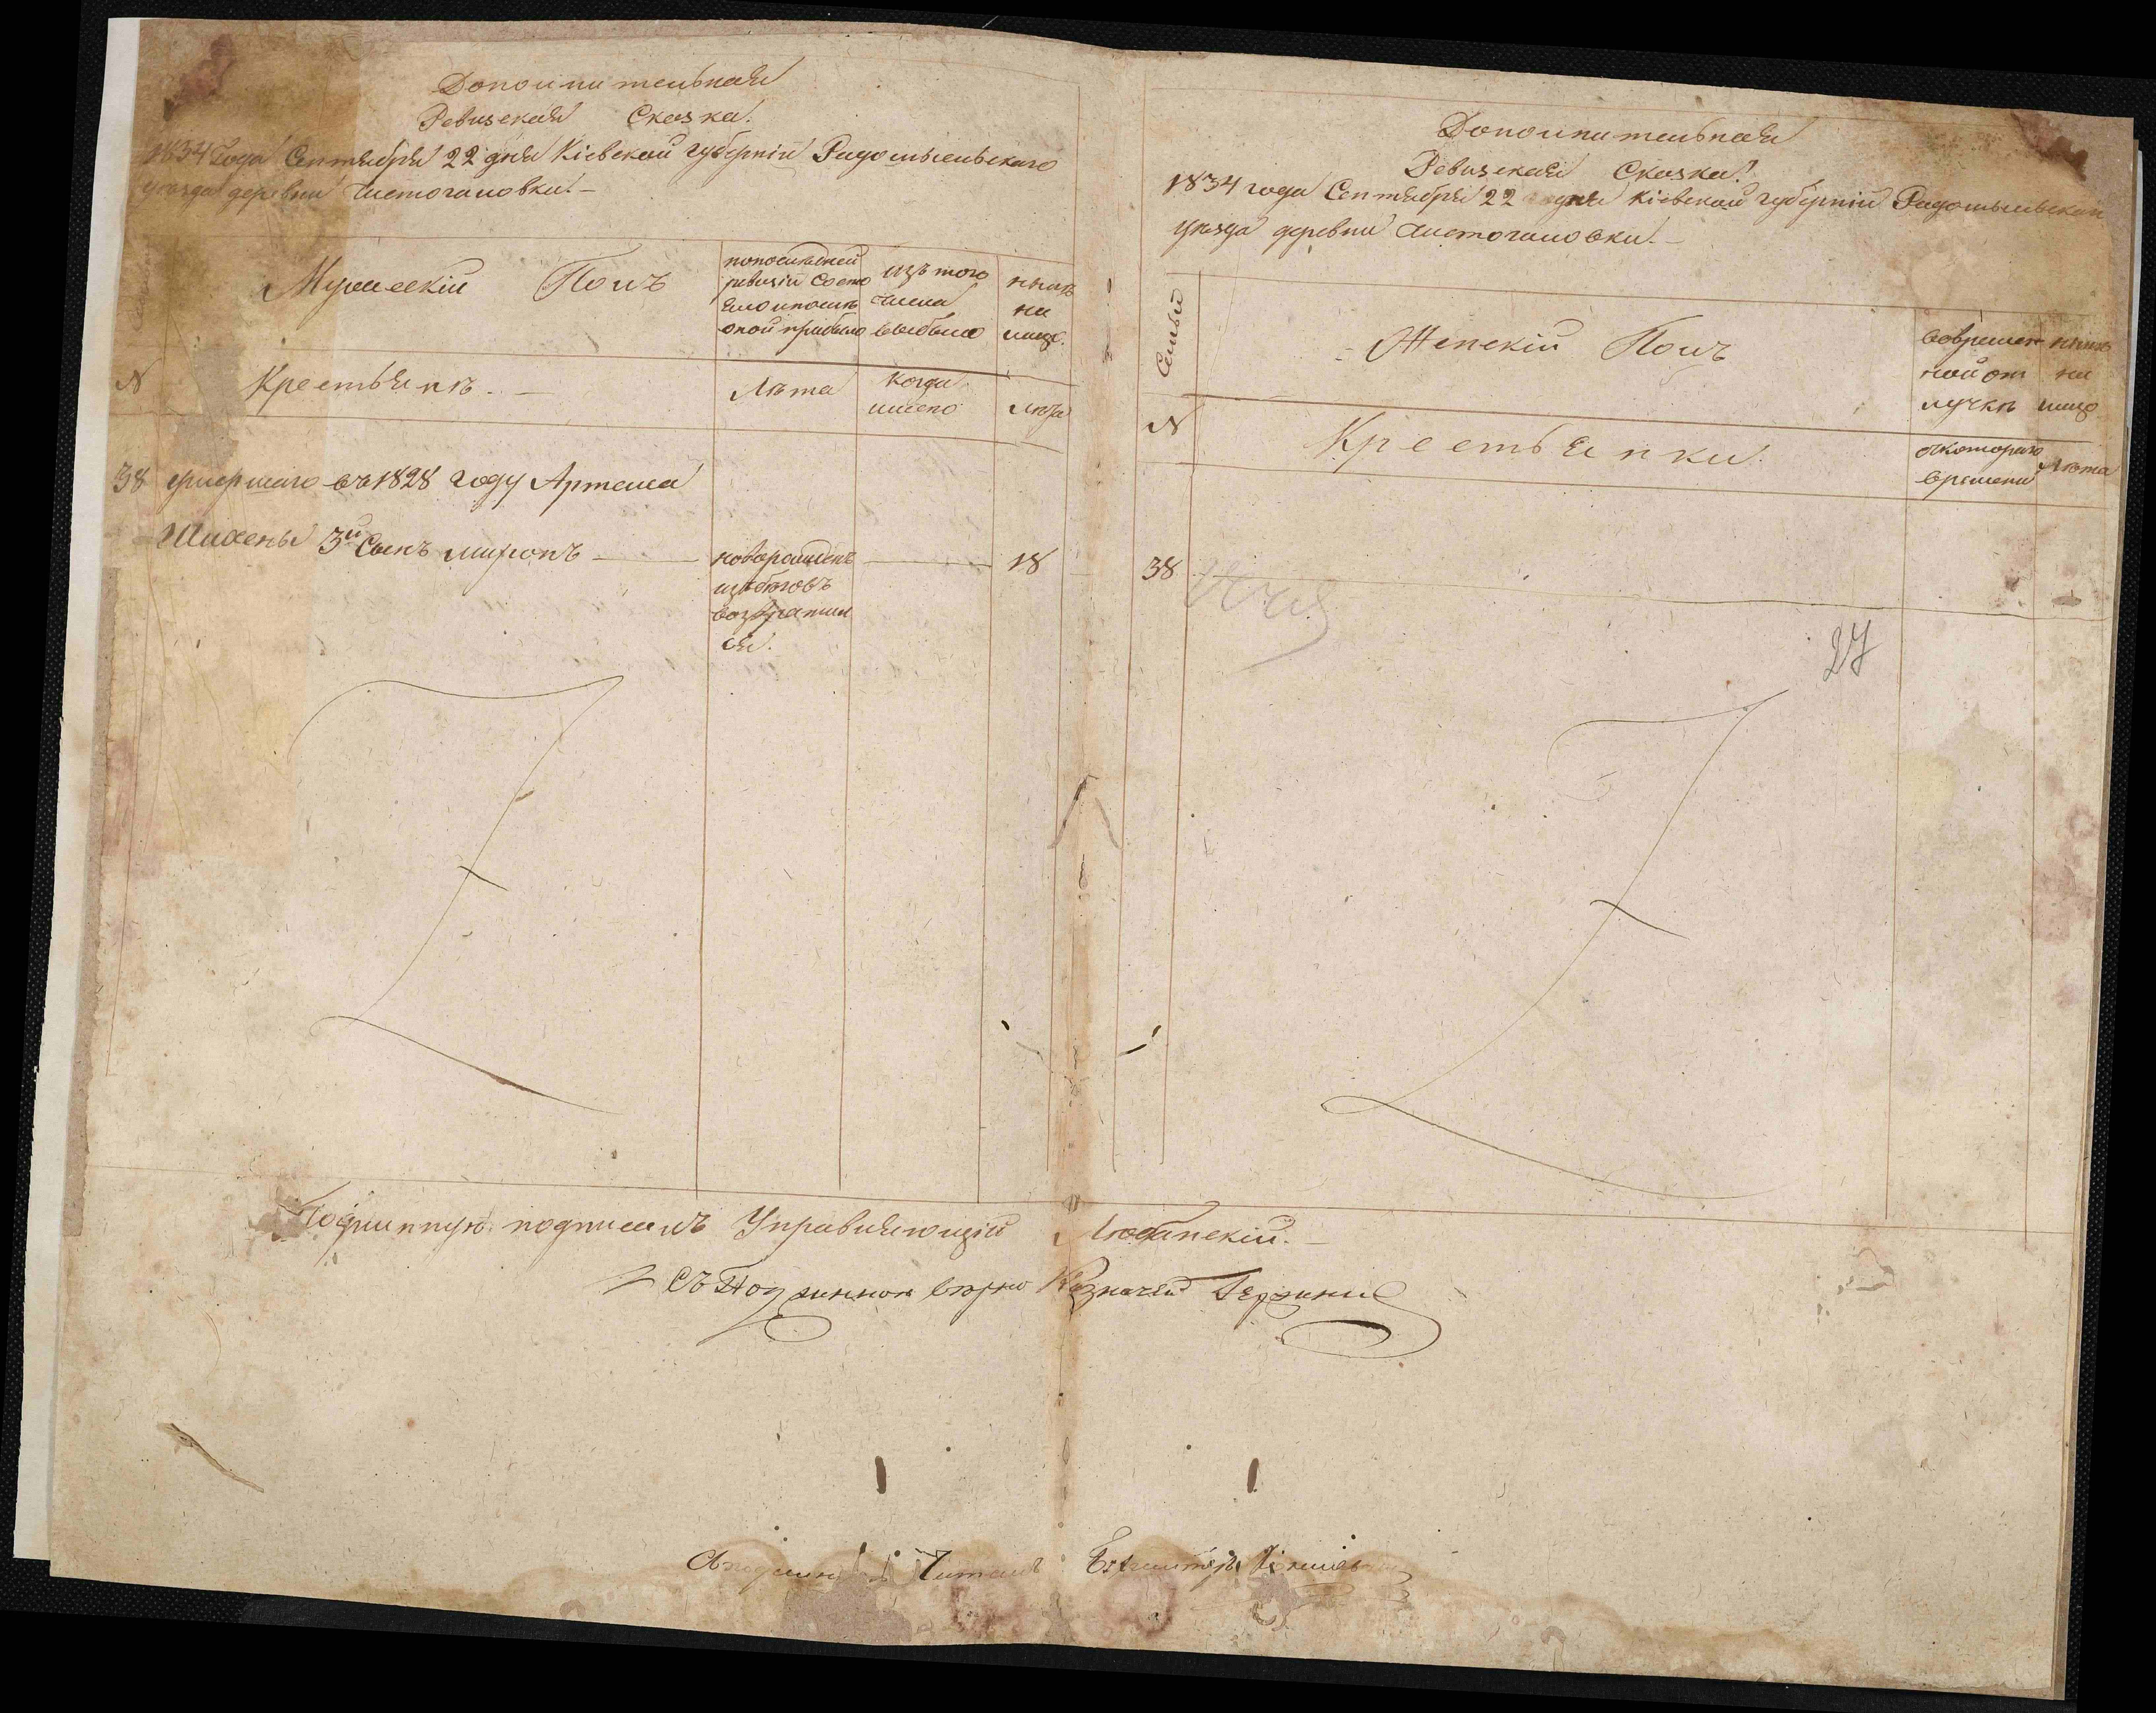 Дополнительная
Ревизская Сказка.
1834 года Сентября 22 дня Кіевской губерніи Радомысльскаго
уезда деревни Чистогаловки. —
Мужескій Полъ
попоследней
ревизіи состо
яло ипосле
оной прибыло
изъ того
числа
выбыло
ныне
на
лицо.
№
Крестьяне. —
Лета
когда
имено
Лета
38 умершаго въ 1828 году Артема
3й Сынъ Миронъ —
новорожденъ
избеговъ
возвратил
ся.
18
Дополнительная
Ревизская Сказка.
1834 года Сентября 22 дня Кіевской губерніи Радомысльскаго
уезда деревни Чистогаловки. —
Семьи
Женскій Полъ
вовремен
ной от
лучке
ныне
на
лицо
№
Крестьянки.
скотораго
времени
Лета
38
27
Подлинную подписалъ Управляющій Любинскій. —
Съ Подлинною верно Казначей
Читалъ